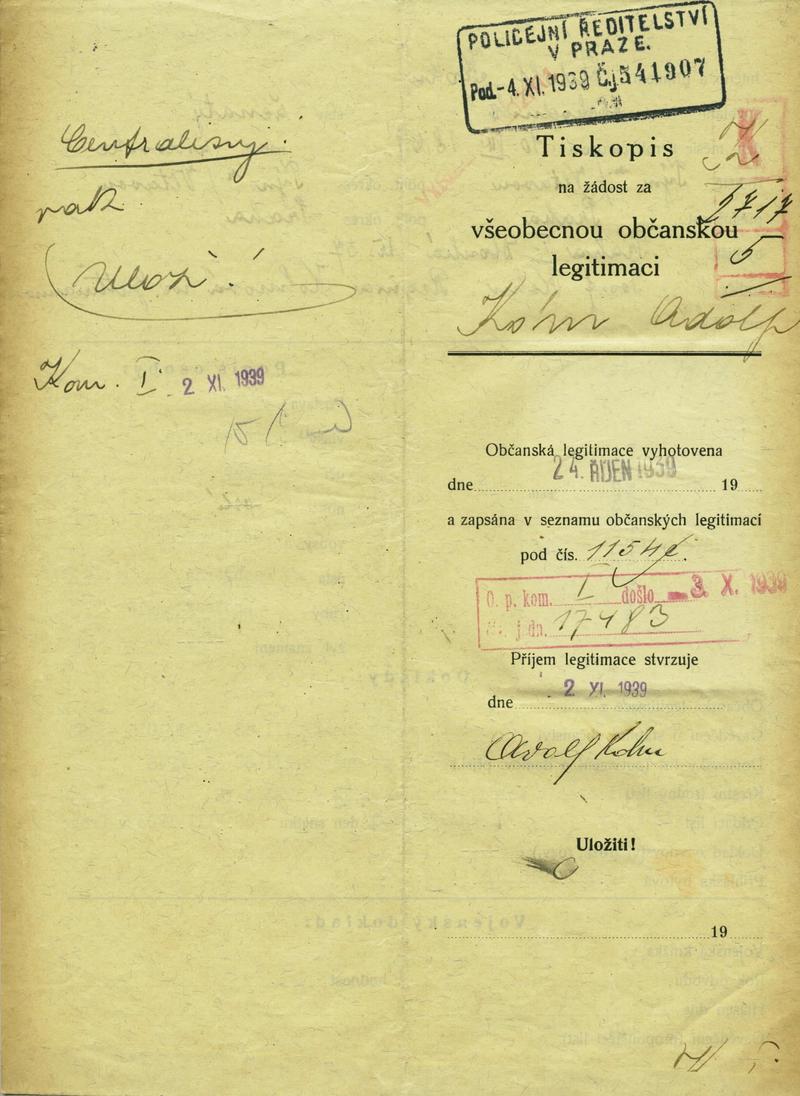 POLICEJNÍ ŘEDITELSTVÍ
V PRAZE.
Pod. -4. XI. 1939 Čj 541907
Tiskopis
na žádost za
všeobecnou občanskou
legitimaci
K
1717
5
Kohn Adolf
Centralisuj!
pak
Ulož!
Kom. I. 2 XI. 1939
Občanská legitimace vyhotovena
24. ŘÍJEN 1939
dne 19
a zapsána v seznamu občanských legitimací
pod čís.
O. p. kom. I došlo -3. X. 1939
17483
Příjem legitimace stvrzuje
dne 2 XI. 1939
Adolf Kohn
Uložiti!
19